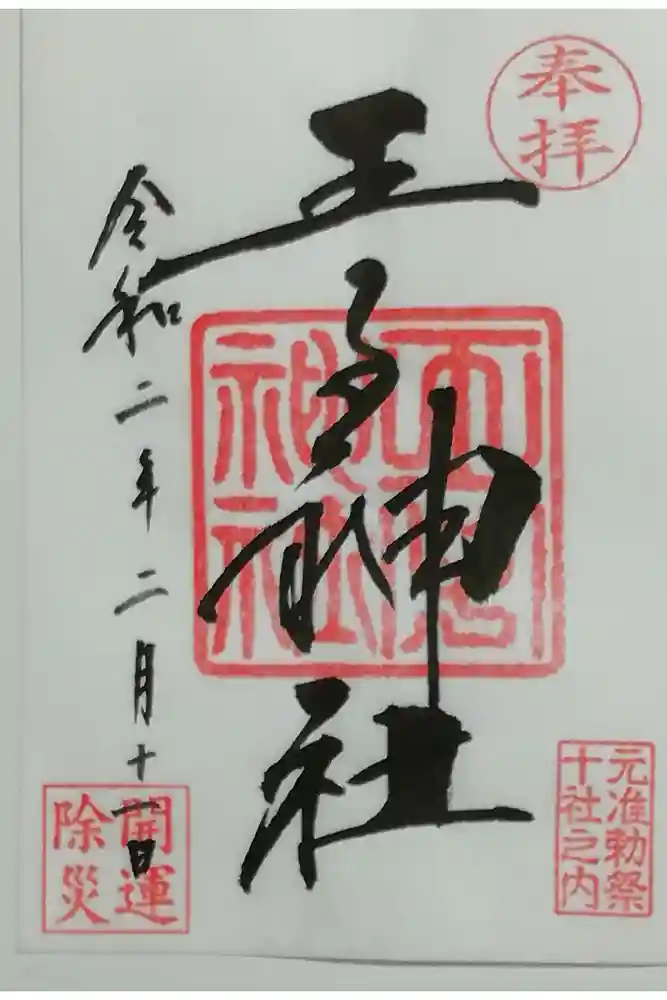 奉拝
王子神社
令和二年二月十一日
元准勅祭
十社之内
開運
除災